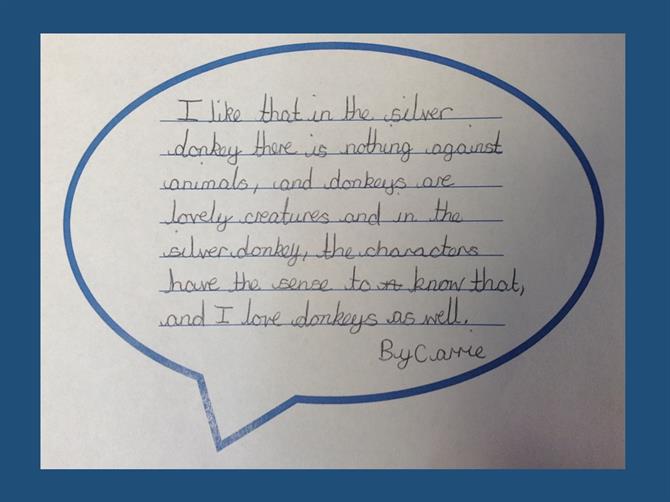 I like that in the silver
donkey there is nothing against
animals, and donkeys are
lovely creatures and in the
silver donkey, the characters
have the sense to know that,
and I love donkeys as well.
By Carrie